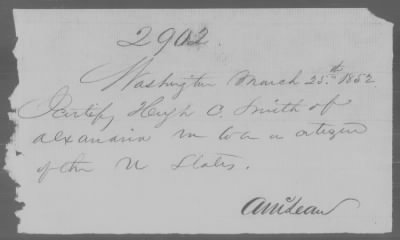 2902.
Washington March 25th 1852
I certify Hugh C. Smith of
alexandria va to be a citizen
of the U States.